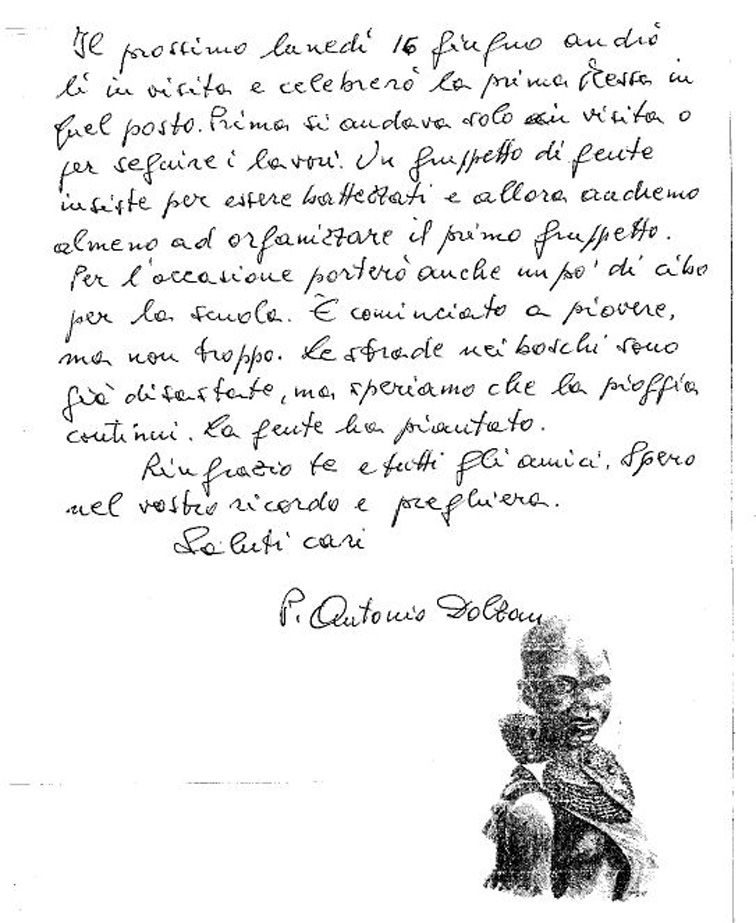 Il prossimo lunedì 16 giugno andrò
lì in visita e celebrerò la prima Messa in
quel posto. Prima si andava solo in visita o
per seguire i lavori. Un gruppetto di gente
insiste per essere battezzati e allora andremo
almeno ad organizzare il primo gruppetto.
Per l'occasione porterò anche un po' di cibo
per la scuola. È cominciato a piovere,
ma non troppo. Le strade nei boschi sono
già disastrate, ma speriamo che la pioggia
continui. La gente ha piantato.
Ringrazio te e tutti gli amici. Spero
nel vostro ricordo e preghiera.
Saluti cari
P. Antonio Dolzan